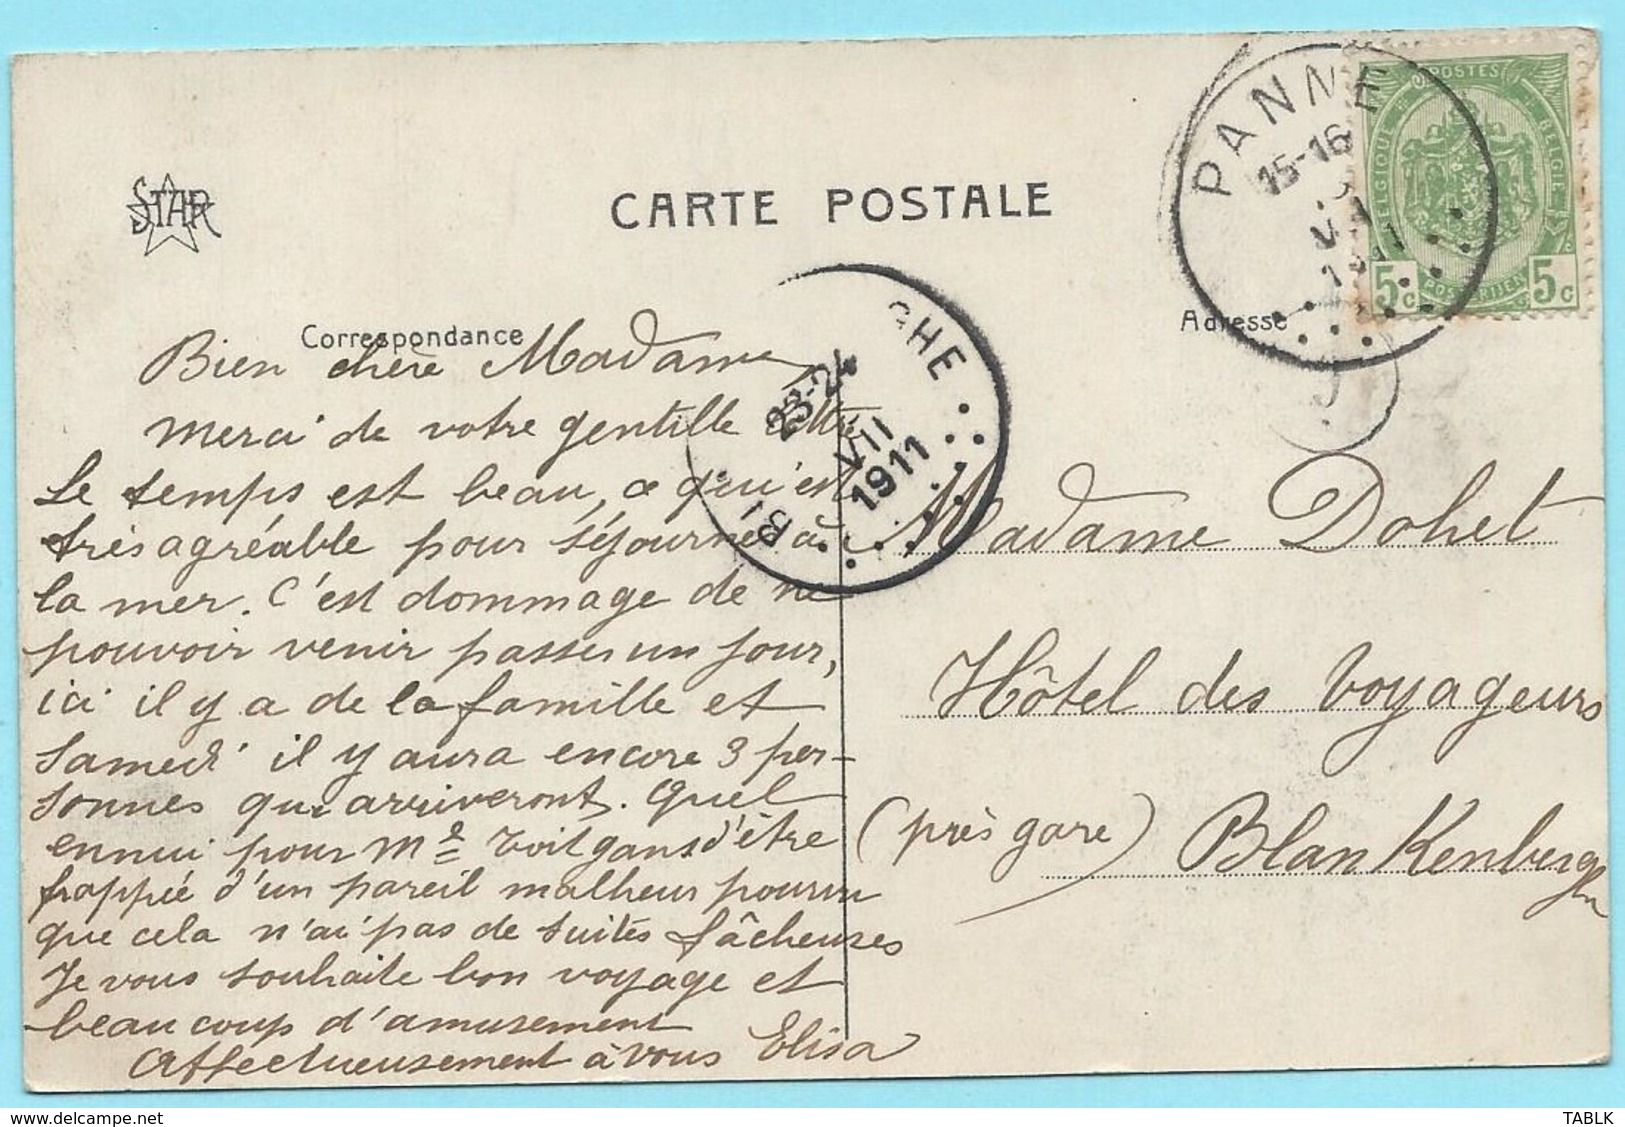 STAR
CARTE POSTALE
Correspondance
Adresse
PANNE
15-16
1911
POSTES
BELGIQUE
BELGIË
POSTERIJEN
5c
5c
BL GHE
23-24
VII
1911
Bien chère Madame,
Merci de votre gentille lettre
Le temps est beau, ce qui est
très agréable pour séjourner à
la mer. C'est dommage de ne
pouvoir venir passer un jour,
ici il y a de la famille et
Samedi il y aura encore 3 per-
sonnes qui arriveront. Quel
ennui pour Mde Voitgans d'être
frappée d'un pareil malheur pourvu
que cela n'ai pas de suites fâcheuses
Je vous souhaite bon voyage et
beaucoup d'amusement
Affectueusement à vous Elisa
Madame Dohet
Hôtel des Voyageurs
(près gare) Blankenberghe
TABLK